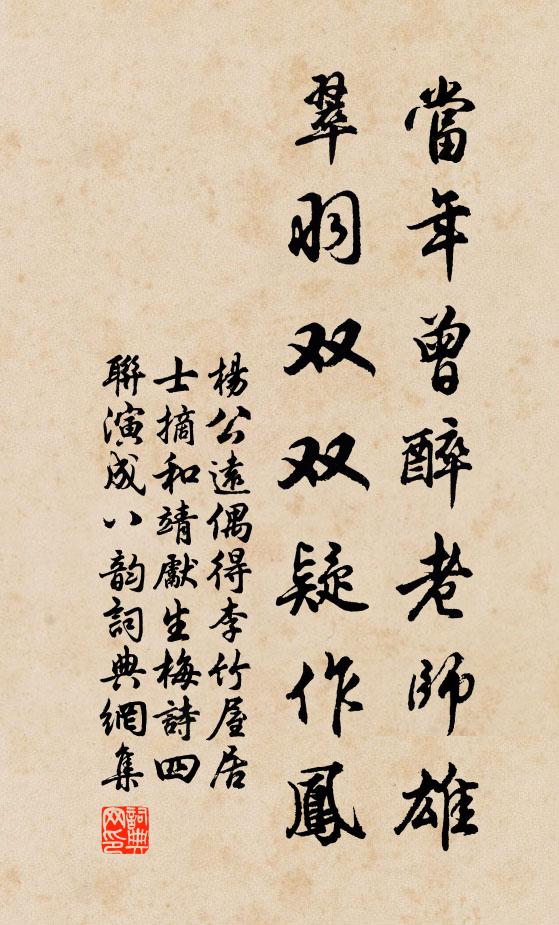 當年曾醉老師雄
翠羽双双疑作鳳
楊公遠偶得李竹屋居
士摘和靖獻生梅詩四
聯演成八韵詞典網集
詞典网印